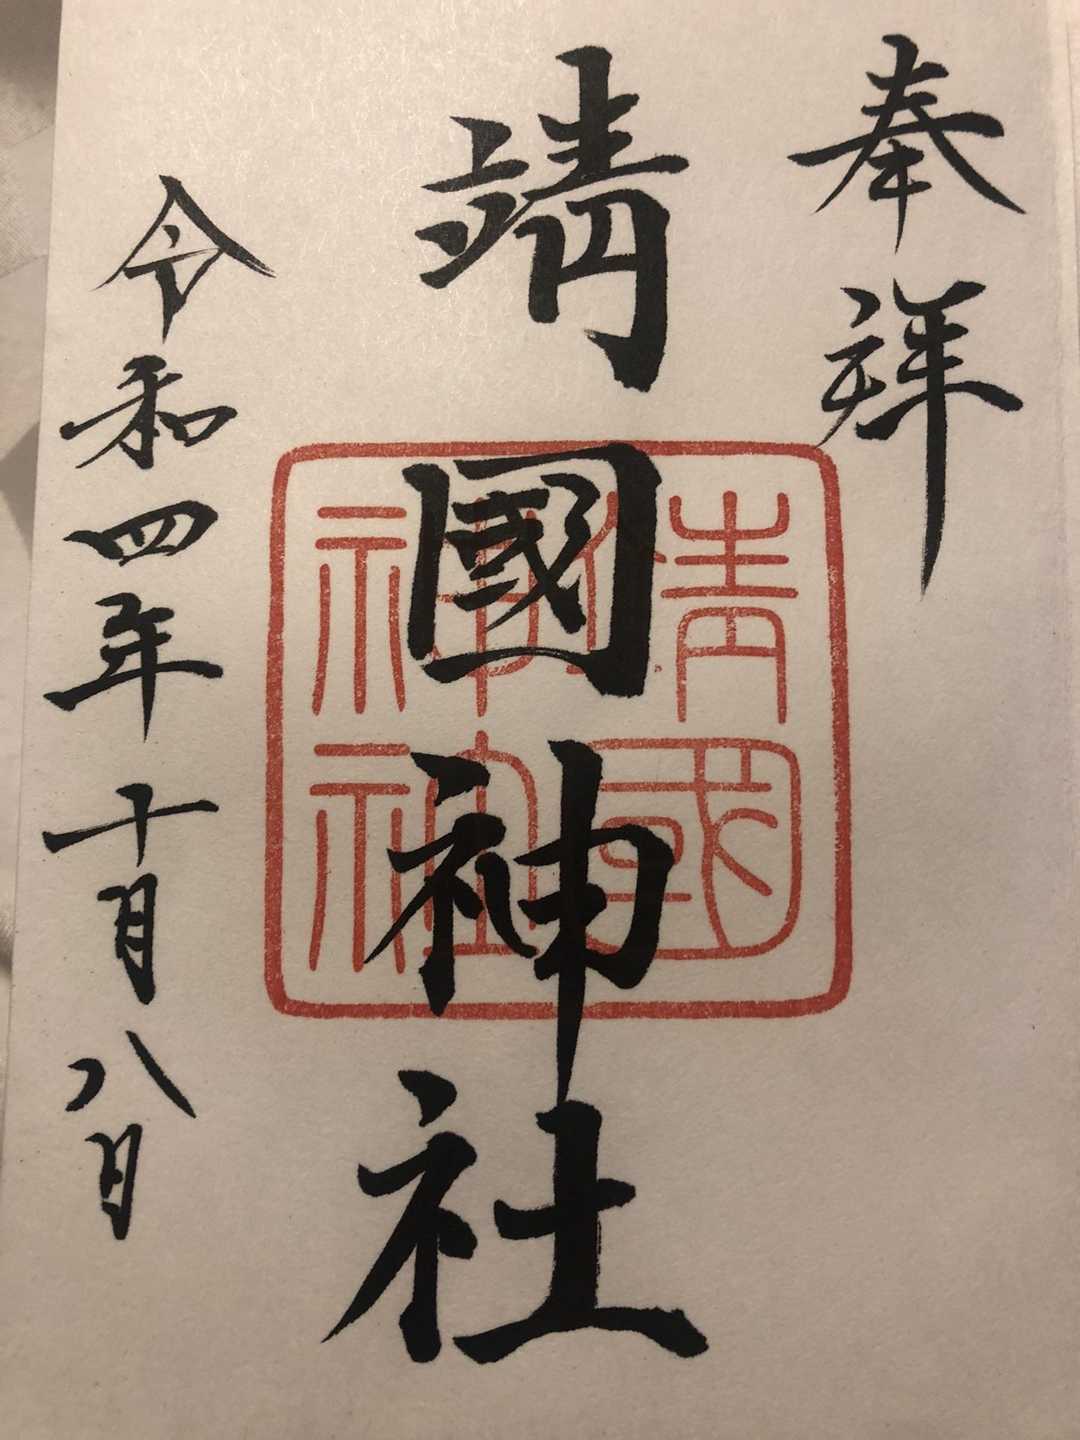 奉拝
靖國神社
靖國
神社
令和四年十月八日